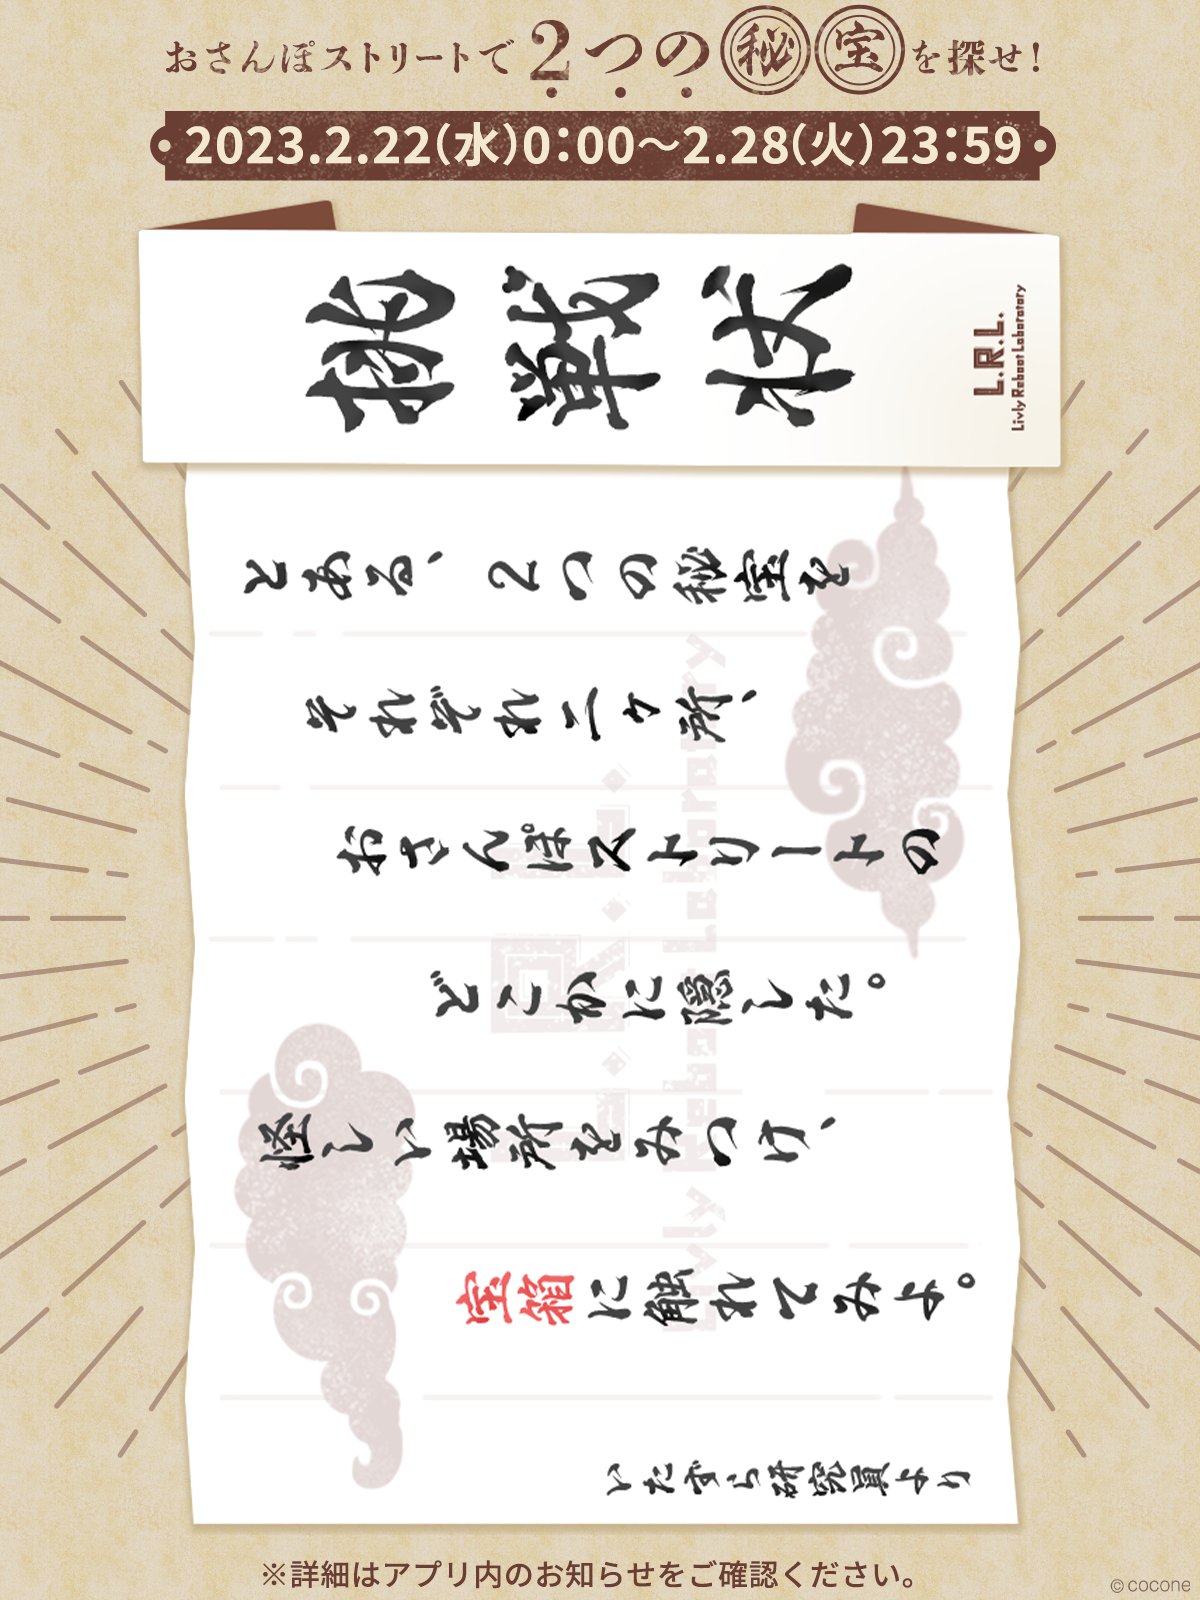 おさんぽストリートで2つの秘宝を探せ!
2023.2.22(水)0:00〜2.28(火)23:59
挑戦状
L.R.L.
Livly Reboot Laboratory
とある、2つの秘宝を
それぞれ二ヶ所、
おさんぽストリートの
どこかに隠した。
怪しい場所をみつけ、
宝箱に触れてみよ。
いたずら研究員より
L.R.L.
Livly Reboot Laboratory
※詳細はアプリ内のお知らせをご確認ください。
© cocone